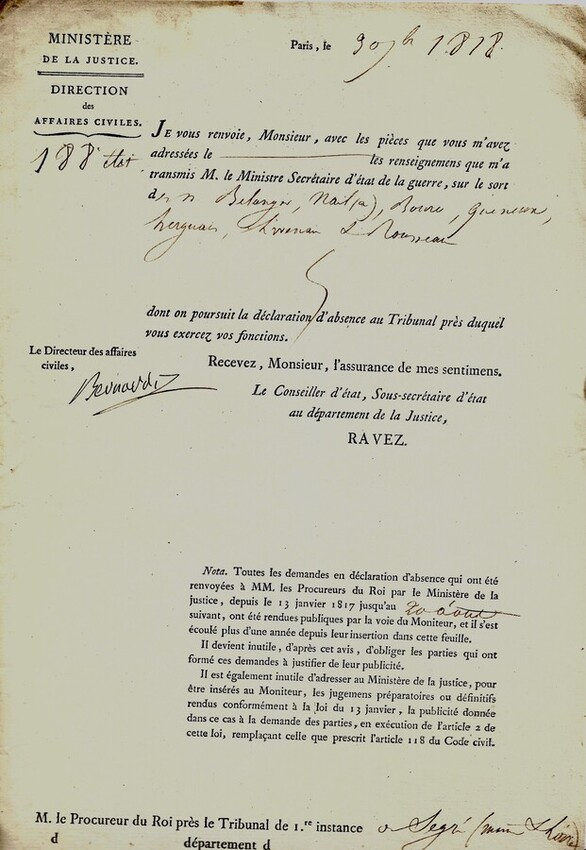 MINISTÈRE
DE LA JUSTICE.
DIRECTION
des
AFFAIRES CIVILES.
Paris, le 9bre 1818.
JE vous renvoie, Monsieur, avec les pièces que vous m'avez
adressées le les renseignemens que m'a
transmis M. le Ministre Secrétaire d'état de la guerre, sur le sort
Belanger,
& Rousseau
dont on poursuit la déclaration d'absence au Tribunal près duquel
vous exercez vos fonctions.
Recevez, Monsieur, l'assurance de mes sentimens.
Le Directeur des affaires
civiles,
Le Conseiller d'état, Sous-secrétaire d'état
au département de la Justice,
RAVEZ.
Nota. Toutes les demandes en déclaration d'absence qui ont été
renvoyées à MM. les Procureurs du Roi par le Ministère de la
justice, depuis le 13 janvier 1817 jusqu'au 20 août
suivant, ont été rendues publiques par la voie du Moniteur, et il s'est
écoulé plus d'une année depuis leur insertion dans cette feuille.
Il devient inutile, d'après cet avis, d'obliger les parties qui ont
formé ces demandes à justifier de leur publicité.
Il est également inutile d'adresser au Ministère de la justice, pour
être insérés au Moniteur, les jugemens préparatoires ou définitifs
rendus conformément à la loi du 13 janvier, la publicité donnée
dans ce cas à la demande des parties, en exécution de l'article 2 de
cette loi, remplaçant celle que prescrit l'article 118 du Code civil.
M. le Procureur du Roi près le Tribunal de 1.re instance Segré
d département d